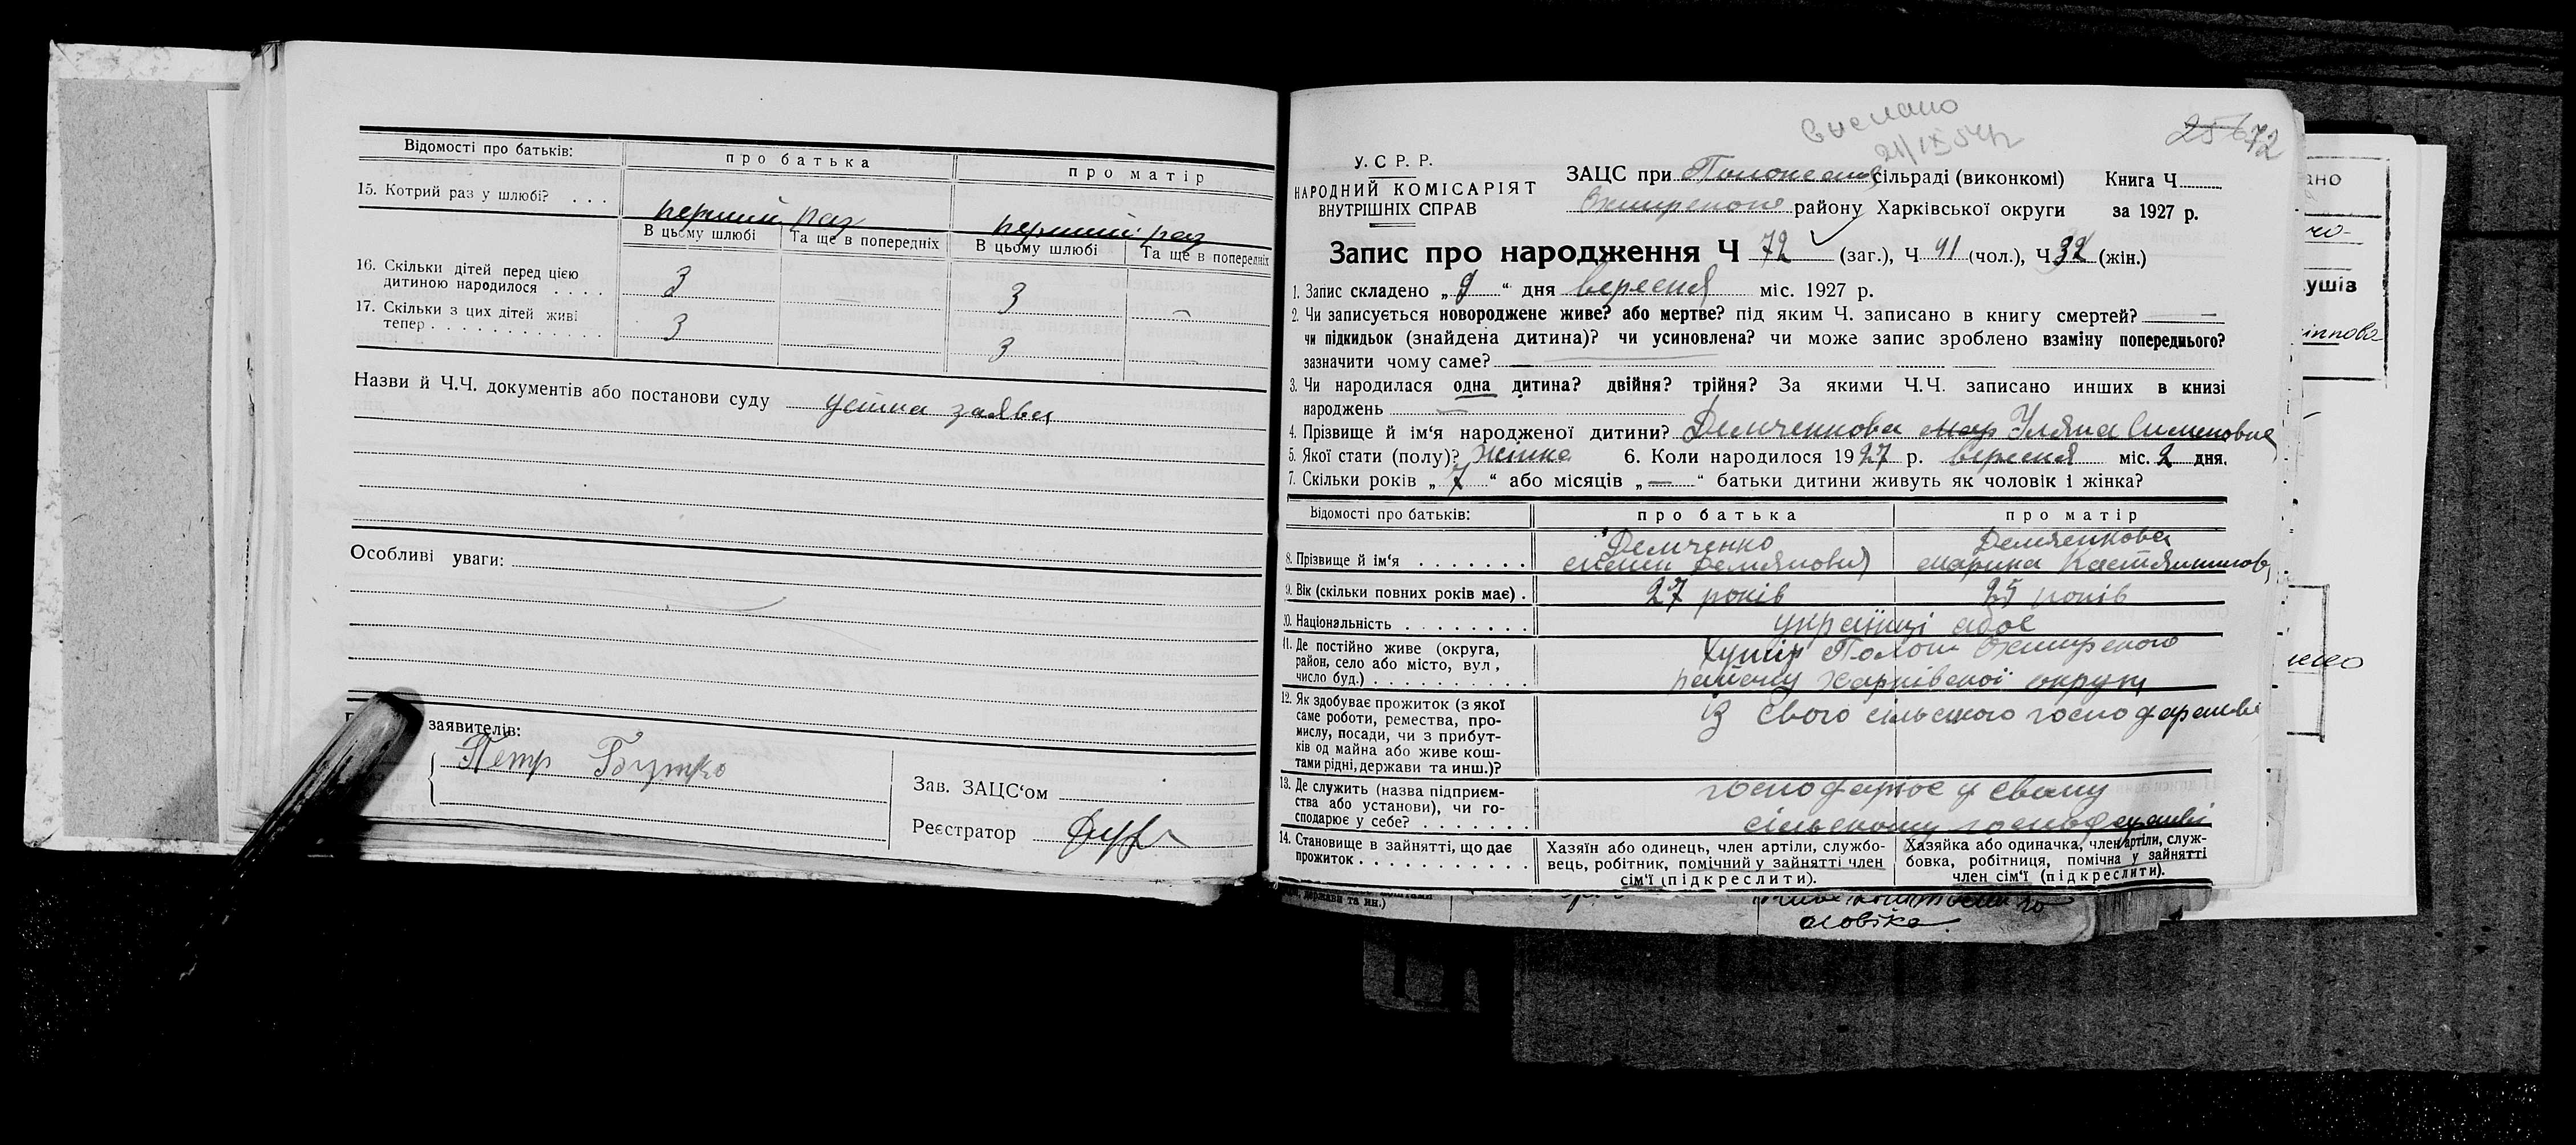 Відомості про батьків:
про батька
про матір
15. Котрий раз у шлюбі? . . .
перший раз
перший раз
В цьому шлюбі
Та ще в попередніх
В цьому шлюбі
Та ще в попередніх
16. Скільки дітей перед цією
дитиною народилося . . . .
3
3
17. Скільки з цих дітей живі
тепер . . . . . . . . . . . .
3
3
Назви й Ч.Ч. документів або постанови суду устна заява
Особливі уваги:
заявителів:
Петр Бутко
Зав. ЗАЦС'ом
Реєстратор
выслано
21/IX 54 г
256 72
У. С. Р. Р.
НАРОДНИЙ КОМІСАРІЯТ
ВНУТРІШНІХ СПРАВ
ЗАЦС при сільраді (виконкомі)
Книга Ч.
району Харківської округи
за 1927 р.
Запис про народження Ч 72 (заг.), Ч 41 (чол.), Ч 32 (жін.)
1. Запис складено „9“ дня вересня міс. 1927 р.
2. Чи записується новороджене живе? або мертве? під яким Ч. записано в книгу смертей? —
чи підкидьок (знайдена дитина)? чи усиновлена? чи може запис зроблено взаміну попереднього?
зазначити чому саме? —
3. Чи народилася одна дитина? двійня? трійня? За якими Ч.Ч. записано инших в книзі
народжень —
4. Прізвище й ім'я народженої дитини? Демченкова мар Уляна Сименовна
5. Якої стати (полу)? жінка 6. Коли народилося 1927 р. вересня міс. 2 дня.
7. Скільки років „7“ або місяців „—“ батьки дитини живуть як чоловік і жінка?
Відомості про батьків:
про батька
про матір
8. Прізвище й ім'я . . . . . . .
Демченко
Демянович
Демченкова
марина
9. Вік (скільки повних років має) .
27 років
25 років
10. Національність . . . . . . . .
українці обоє
11. Де постійно живе (округа,
район, село або місто, вул,
число буд.) . . . . . . . . . .
хутір
району харківскої округи
12. Як здобуває прожиток (з якої
саме роботи, ремества, про-
мислу, посади, чи з прибут-
ків од майна або живе кош-
тами рідні, держави та инш.)?
Із свого сільского господарства
13. Де служить (назва підприєм-
ства або установи), чи го-
сподарює у себе? . . . . . . .
господарює у свому
сільскому господарстві
14. Становище в зайнятті, що дає
прожиток . . . . . . . . . . .
Хазяїн або одинець, член артіли, службо-
вець, робітник, помічний у зайнятті член
сім'ї (підкреслити).
Хазяйка або одиначка, член артіли, служ-
бовка, робітниця, помічна у зайнятті
член сім'ї (підкреслити).
держави та ин.)